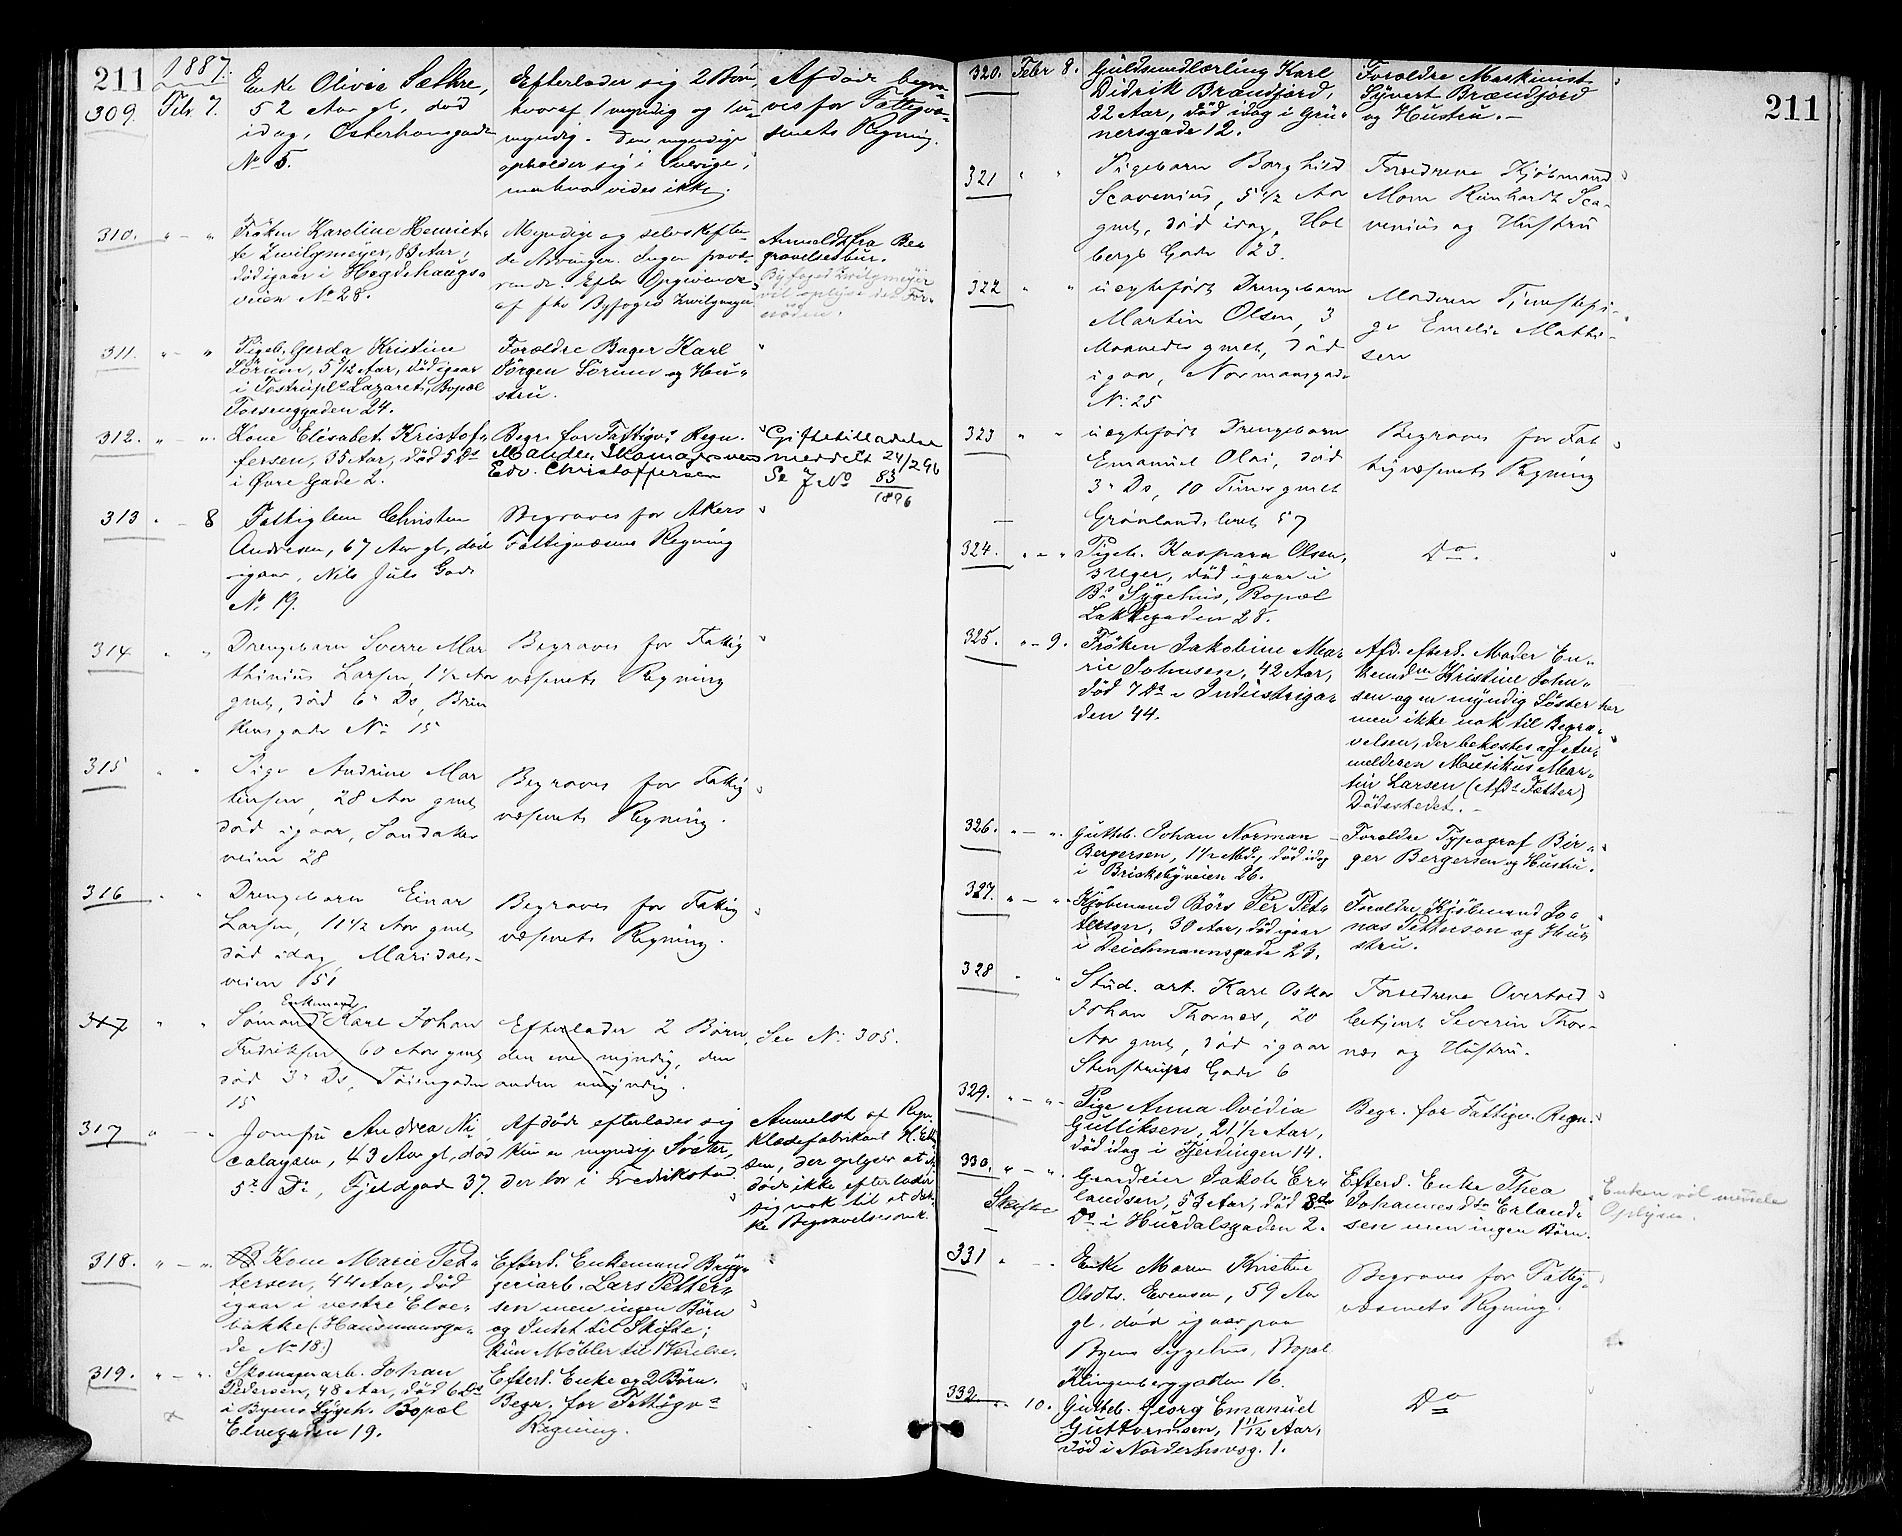 211
1887.
309. Febr. 7. Enke Olivia Sæthre,
52 Aar gl., død
idag, Osterhausgade
No 5.
Efterlader sig 2 Børn,
hvoraf 1 myndig og 1 u-
myndig. Den myndige
opholder sig i Sverige;
men hvor vides ikke.
Afdøde begra-
ves for Fattigvæ-
senets Regning.
310. " - " Frøken Karoline Henriet-
te Zwilgmeyer, 83 Aar,
død igaar i Hegdehaugs-
veien No 28.
Myndige og selvskiftende
Arvinger. Ingen fravæ-
rende. Efter Opgivende
af fhv. Byfoged Zwilgmeyer
Anmeldt fra Be-
gravelsesbur.
Byfoged Zwilgmeyer
vil oplyse det For-
nødne.
311. " - " Pigeb. Gerda Kristine
Sørum, 5 1/2 Aar, død igaar
i Tostrupl. Lazaret, Bopæl
Torsenggaden 24.
Forældre Bager Karl
Jørgen Sørum og Hu-
stru.
"
312. " - " Kone Elisabet Kristof-
fersen, 35 Aar, død 5 Ds
i Øvre Gade 2.
Begr. for Fattigv. Regn.
Manden Skomagersvend
Edv. Christoffersen
Giftetilladelse
meddelt 24/2 96
Se J No 83/1896
313 " - 8 Fattiglem Christen
Andresen, 67 Aar gl., død
igaar, Nils Juls Gade
No 19.
Begraves for Akers
Fattigvæsens Regning
314 " " Drengebarn Sverre Mar
thinius Larsen, 1 1/2 Aar
gml, død 6 Ds, Brin
kensgade No 15
Begraves for Fattig
væsenets Regning
315 " " Pige Andrine Mar
tinsen, 28 Aar gml
død igaar, Sandaker
veien 28
Begraves for Fattig
væsenets Regning.
316 " " Drengebarn Einar
Larsen, 11 1/2 Aar gml
død idag Maridals-
veien 151
Begraves for Fattig
væsenets Regning.
317 " " Enkemand
Sømand Karl Johan
Fredriksen 60 Aar gml
død 3 Ds, Tøiengaden
15
Efterlader 2 Børn,
den ene myndig, den
anden umyndig.
See No 305.
317 " - " Jomfru Andrea Ni-
colaysen, 43 Aar gl., død
5 Ds, Fjeldgad 37.
Afdøde efterlader sig
kun en myndig Søster,
der bor i Fredrikstad.
Anmeldt af
klædefabrikant H.
sen, der oplyser at Af-
døde ikke efterlader
sig nok til at dæk-
ke Begravelsesomk.
318. " - " Kone Marie Pet-
tersen, 44 Aar, død
igaar i vestre Elve-
bakke (Hausmannsga-
de No 18.)
Efterl. Enkemand Bryg-
geriarb. Lars Petter-
sen men ingen Børn
og Intet til Skifte;
kun Møbler til 1 Værelse.
319. " - " Skomagerarb. Johan
Pedersen, 48 Aar, død 6 Ds
i Byens Sygeh. Bopæl
Elvegaden 19.
Efterl. Enke og 2 Børn.
Begr. for Fattigv.
Regning.
211
320. Febr 8. Guldsmedlærling Karl
Didrik Brændfjord,
22 Aar, død idag i Grü-
nersgade 12.
Forældre Maskinist
Syvert Brændfjord
og Hustru.
321 " " Pigebarn Borghild
Scavenius, 5 1/2 Aar
gml, død idag, Hol
bergs Gade 23.
Forældrene Kjøbmand
Morn Reinhardt Sca-
venius og Hustru
322 " " uægtefødt Drengebarn
Martin Olsen, 3
Maaneder gmlt, død
igaar, Normansgade
No 25
Moderen Tjenestepi-
ge Emelie Mathi-
sen
323 " " uægtefødt Drengebarn
Emanuel Olai, død
3 Ds, 10 Timer gmlt
Grønlandsleret 57
Begraves for Fat
tigvæsenets Regning
324. " - " Pigeb. Kaspara Olsen,
3 Uger, død igaar i
Bs Sygehus, Bopæl
Lakkegaden 28.
Do.
325. " - 9. Frøken Jakobine Ma-
rie Johnsen, 42 Aar,
død 7 Ds i Industriga-
den 44.
Afd. efterl. Moder En-
kemdm Kristine John-
sen og en myndig Søster her
men ikke nok til Begra-
velsen, der bekostes af An-
melderen Musikus Mar-
tin Larsen (Afds Fætter)
Dødsstedet.
326. " - " Gutteb. Johan Norman
Bergersen, 1 1/2 Md., død idag
i Briskebyveien 26.
Forældre Typograf Bir-
ger Bergersen og Hustru.
327. " - " Kjøbmand Børs Per Pet-
terson, 30 Aar, død igaar
i Deichmannsgade 23.
Forældre Kjøbmand Jo-
nas Petterson og Hu-
stru.
328 " " Stud. art. Karl Oskar
Johan Thornes, 20
Aar gml, død igaar
Stenstrups Gade 6
Forældrene Overtold
betjent Severin Thor-
nes og Hustru.
329. " - " Pige Anna Ovidia
Gulliksen, 21 1/2 Aar,
død idag i Fjerdingen 14.
Begr. for Fattigv. Regn.
330. " - " Gaardeier Jakob Er-
landsen, 53 Aar, død 8de
Ds i Hurdalsgaden 2.
Skifte
Efterl. Enke Thea
Johannesdtr Erland-
sen men ingen Børn.
Enken vil møde
Oplysn.
331 " - " Enke Maren Kristie
Olsdtr. Evensen, 59 Aar
gl. død igaar paa
Byens Sygehus, Bopæl
Klingenberggaden 16.
Begraves for Fattig-
væsenets Regning.
332 " 10. Gutteb. Georg Emanuel
Guttormsen, 1 11/12 Aar,
død i Norderhovsg. 1.
Do